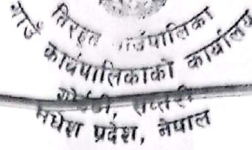 तिरहुत गाउँपालिका
गाउँ कार्यपालिकाको कार्यालय
मधेश प्रदेश, नेपाल